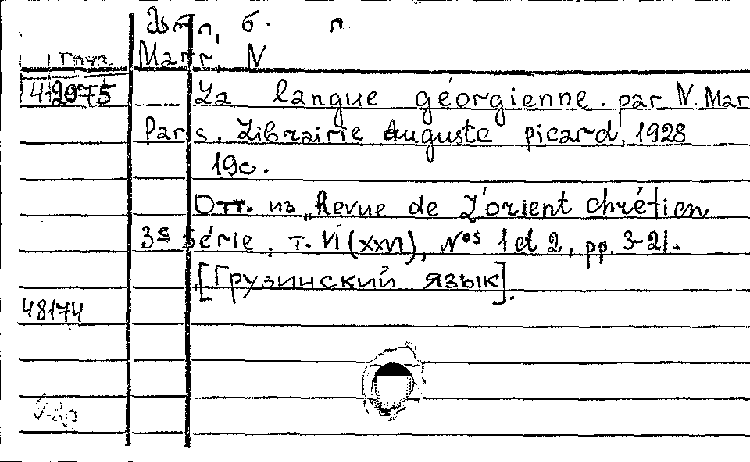 მარი, ნ.
Груз. Marr, N
412975 La langue géorgienne. par N. Mar
Paris. Librairie Auguste picard, 1928
19с.
Отт. из „Revue de L'orient chrétien
3e série, т. VI (XXVI), Nos 1 et 2, pp. 3-21.
[Грузинский язык].
48174